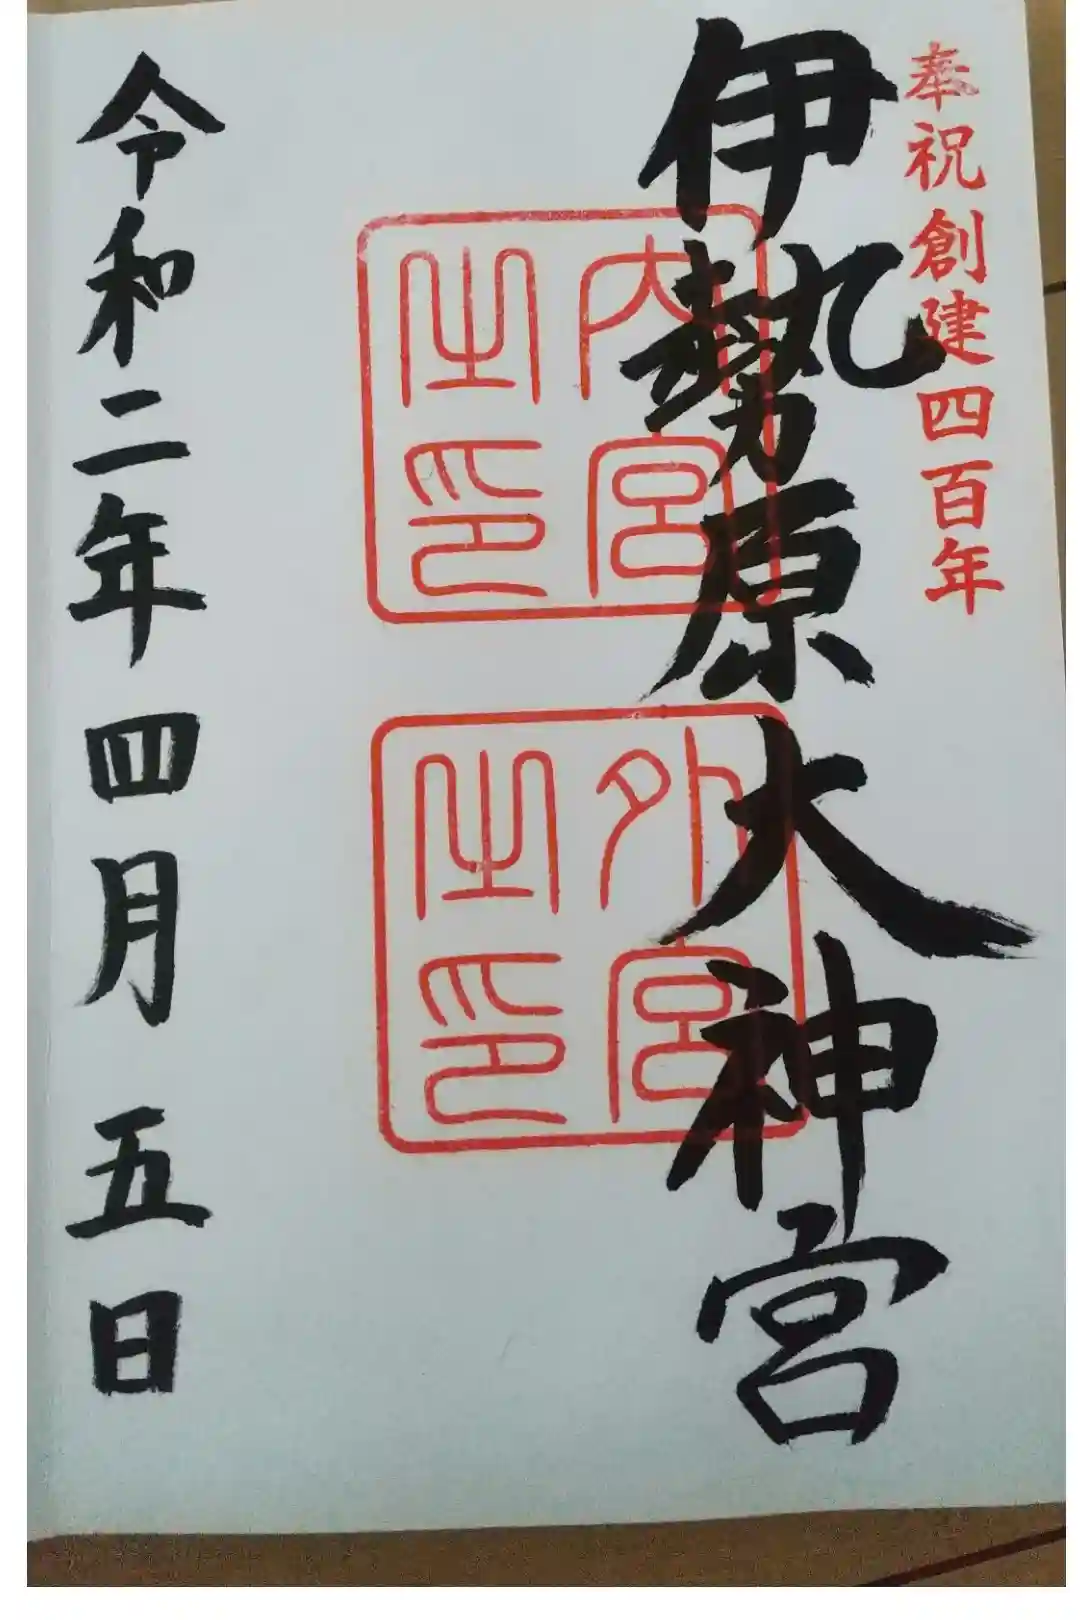 奉祝創建四百年
伊勢原大神宮
内宮之印
外宮之印
令和二年四月五日